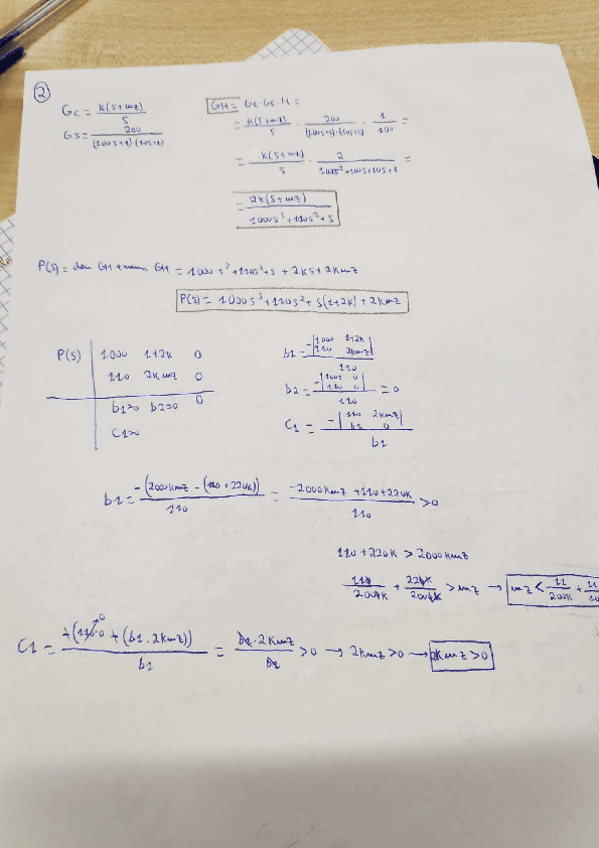 2
Gc = K(s+mz) / s
Gs = 200 / (100s+1)·(10s+1)
GH = Gc·Gc·H =
= K(s+mz) / s · 200 / (100s+1)·(10s+1) · 1 / 100 =
= K(s+mz) / s · 2 / 1000s²+100s+10s+1 =
= 2K(s+mz) / 1000s³+110s²+s
P(s) = den GH + num GH = 1000s³+110s²+s + 2Ks + 2Kmz
P(s) = 1000s³+110s²+ s(1+2K) + 2Kmz
P(s) | 1000 1+2K 0
110 2Kmz 0
b1>0 b2=0 0
C1>0
b1 = -|1000 1+2K; 110 2Kmz| / 110
b2 = -|1000 0; 110 0| / 110 = 0
C1 = -|110 2Kmz; b1 0| / b1
b1 = -(2000Kmz - (110+220K)) / 110 = -2000Kmz+110+220K / 110 >0
110 + 220K > 2000Kmz
110 / 2000K + 220K / 2000K > mz → mz < 11 / 200K + 11
C1 = +(110·0 + (b1·2Kmz)) / b1 = b1·2Kmz / b1 >0 → 2Kmz>0 → Kmz>0